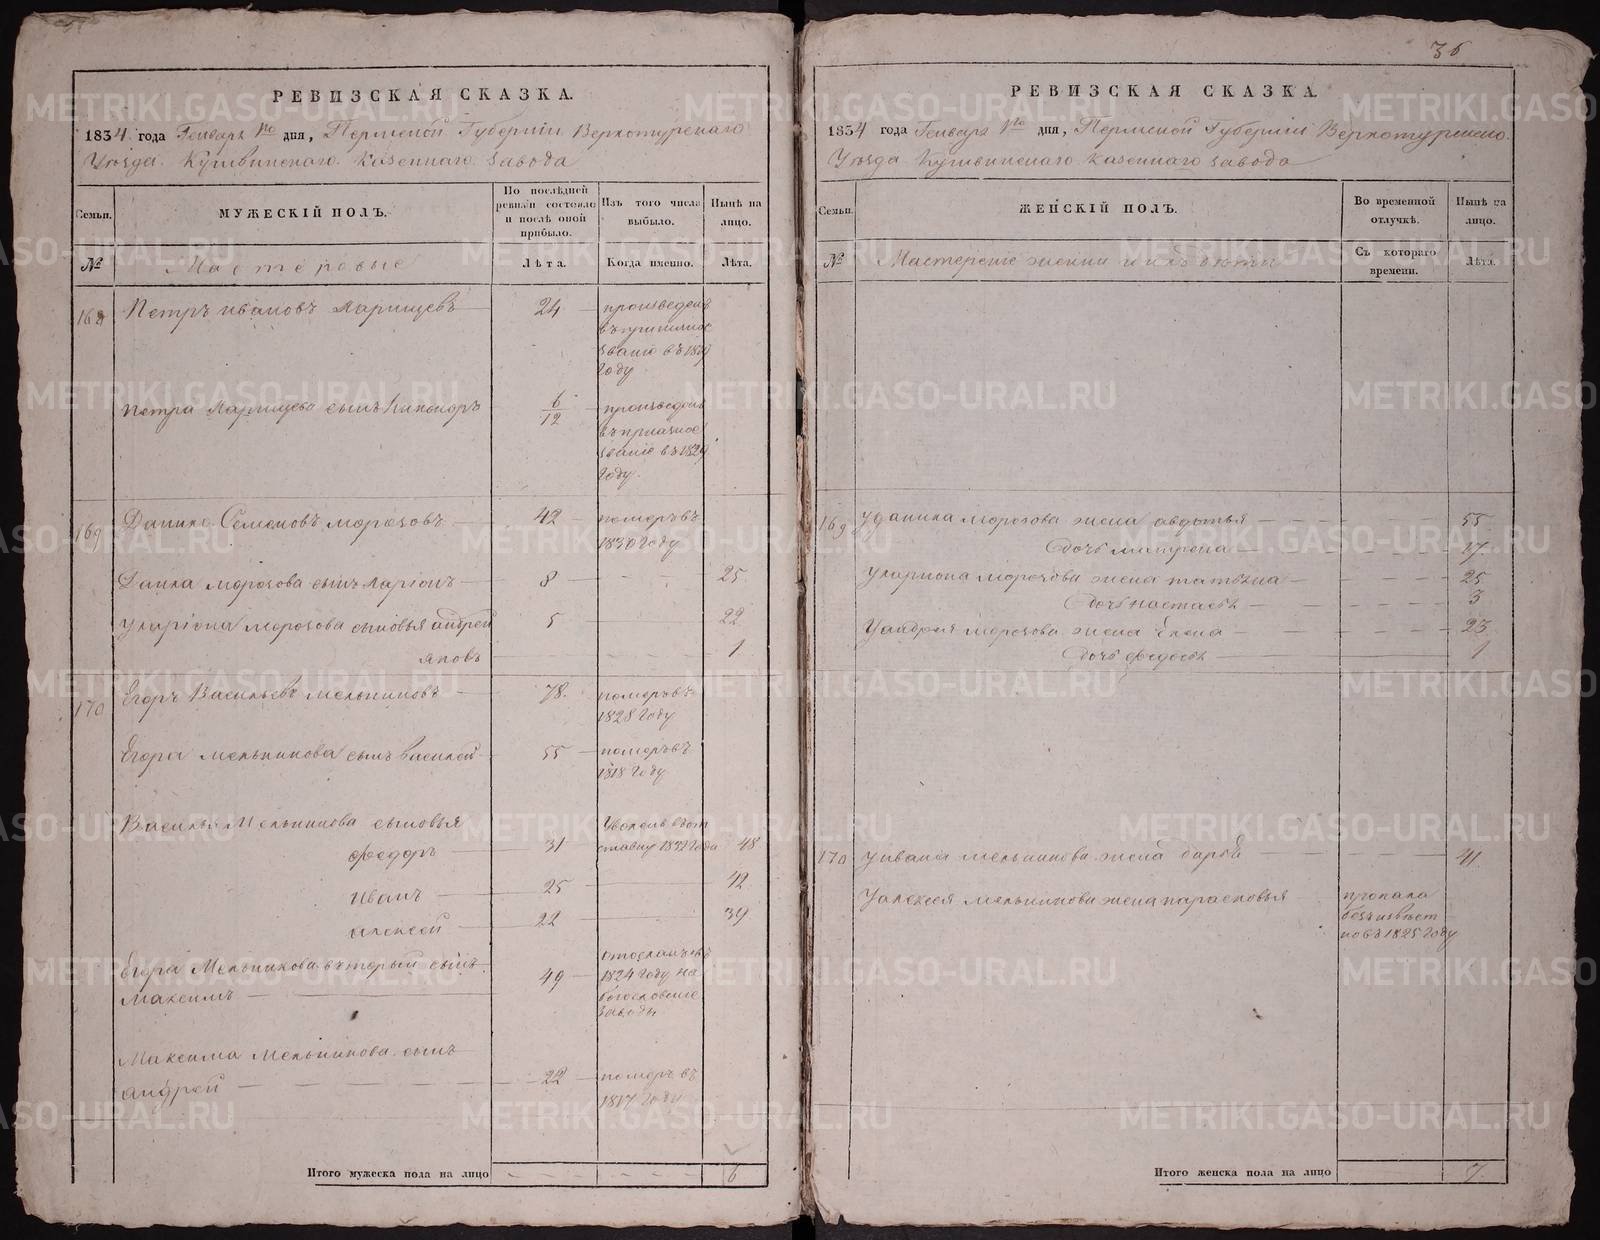 36
РЕВИЗСКАЯ СКАЗКА.
1834 года Генваря 1го дня, Пермской Губернiи Верхотурскаго
Уѣзда Кушвинскаго казеннаго завода
Семьи. МУЖЕСКIЙ ПОЛЪ. По послѣдней ревизiи состояло и послѣ оной прибыло. Изъ того числа выбыло. Нынѣ на лицо.
№ Мастеровые Лѣта. Когда именно. Лѣта.
168 Петръ Ивановъ 24 произведенъ
званiе въ 18
Году
Петра сынъ 6/12 произведенъ
въ
званiе въ 1829
Году.
169 Данило Семеновъ Морозовъ 42 померъ въ
1830 Году
Данила Морозова сынъ Ларiонъ 8 25
У Ларiона Морозова сыновья андрей 5 22
яковъ 1
170 Егоръ Васильевъ Мельниковъ 78 померъ въ
1828 Году
Егора Мельникова сынъ Василей 55 померъ въ
1818 Году
Василья Мельникова сыновья Уволенъ въ от
федоръ 31 ставку 1832 Года 48
Иванъ 25 42
алексей 22 39
Егора Мельникова второй сынъ отосланъ въ
Максимъ 49 1824 Году на
богословскiе
заводы
Максима Мельникова сынъ
андрей 22 померъ въ
1817 Году
Итого мужеска пола на лицо 6
РЕВИЗСКАЯ СКАЗКА.
1834 года Генваря 1го дня, Пермской Губернiи Верхотурскаго
Уѣзда Кушвинскаго казеннаго завода
Семьи. ЖЕНСКIЙ ПОЛЪ. Во временной отлучкѣ. Нынѣ на лицо.
№ Мастерскiе женки и ихъ дѣти Съ котораго времени. Лѣта.
169 У данила Морозова жена авдотья 55
дочь матрена 17
У лариона Морозова жена татьяна 25
дочь настасья 3
У андрея Морозова жена Елена 23
дочь федосья 1
170 У ивана Мельникова жена 41
У алексея Мельникова жена парасковья пропала
безъ извѣст
но въ 1825 Году
Итого женска пола на лицо 7
METRIKI.GASO-URAL.RU